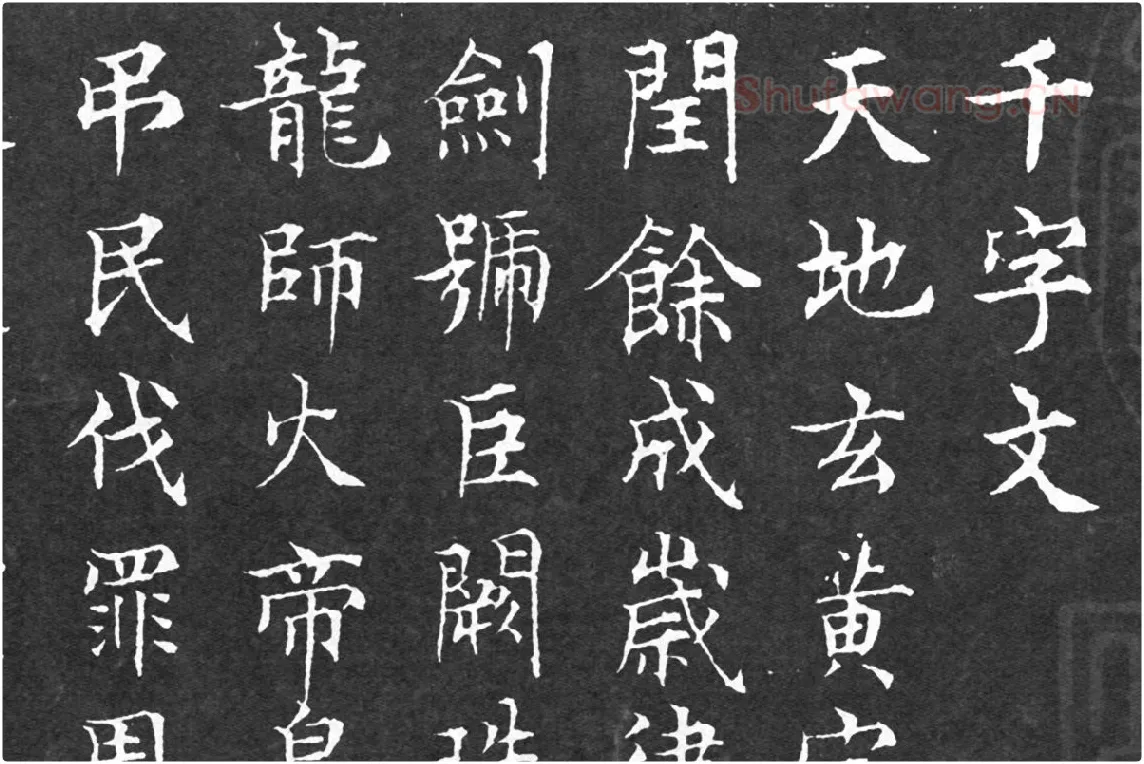 千字文
天地玄黄宇
閏餘成嵗律
劍號巨闕珠
龍師火帝鳥
弔民伐罪周
Shufawang.CN